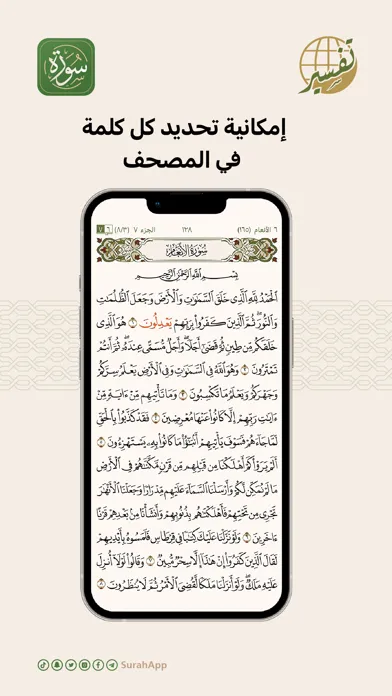 سورة
تفسير
إمكانية تحديد كل كلمة
في المصحف
٦ الأنعام (١٦٥)
١٢٨
الجزء ٧ (٨/٣)
٦
٧
سُورَةُ الأَنْعَامِ
بِسْمِ اللَّهِ الرَّحْمَٰنِ الرَّحِيمِ
الْحَمْدُ لِلَّهِ الَّذِي خَلَقَ السَّمَٰوَٰتِ وَالْأَرْضَ وَجَعَلَ الظُّلُمَٰتِ
وَالنُّورَ ثُمَّ الَّذِينَ كَفَرُوا بِرَبِّهِمْ يَعْدِلُونَ ١ هُوَ الَّذِي
خَلَقَكُم مِّن طِينٍ ثُمَّ قَضَىٰ أَجَلًا وَأَجَلٌ مُّسَمًّى عِندَهُ ثُمَّ أَنتُمْ
تَمْتَرُونَ ٢ وَهُوَ اللَّهُ فِي السَّمَٰوَٰتِ وَفِي الْأَرْضِ يَعْلَمُ سِرَّكُمْ
وَجَهْرَكُمْ وَيَعْلَمُ مَا تَكْسِبُونَ ٣ وَمَا تَأْتِيهِم مِّنْ ءَايَةٍ مِّنْ
ءَايَٰتِ رَبِّهِمْ إِلَّا كَانُوا عَنْهَا مُعْرِضِينَ ٤ فَقَدْ كَذَّبُوا بِالْحَقِّ
لَمَّا جَاءَهُمْ فَسَوْفَ يَأْتِيهِمْ أَنبَٰٓؤُا مَا كَانُوا بِهِ يَسْتَهْزِءُونَ ٥
أَلَمْ يَرَوْا كَمْ أَهْلَكْنَا مِن قَبْلِهِم مِّن قَرْنٍ مَّكَّنَّٰهُمْ فِي الْأَرْضِ
مَا لَمْ نُمَكِّن لَّكُمْ وَأَرْسَلْنَا السَّمَاءَ عَلَيْهِم مِّدْرَارًا وَجَعَلْنَا الْأَنْهَٰرَ
تَجْرِي مِن تَحْتِهِمْ فَأَهْلَكْنَٰهُم بِذُنُوبِهِمْ وَأَنشَأْنَا مِن بَعْدِهِمْ قَرْنًا
ءَاخَرِينَ ٦ وَلَوْ نَزَّلْنَا عَلَيْكَ كِتَٰبًا فِي قِرْطَاسٍ فَلَمَسُوهُ بِأَيْدِيهِمْ
لَقَالَ الَّذِينَ كَفَرُوا إِنْ هَٰذَا إِلَّا سِحْرٌ مُّبِينٌ ٧ وَقَالُوا لَوْلَا أُنزِلَ
عَلَيْهِ مَلَكٌ وَلَوْ أَنزَلْنَا مَلَكًا لَّقُضِيَ الْأَمْرُ ثُمَّ لَا يُنظَرُونَ ٨
SurahApp